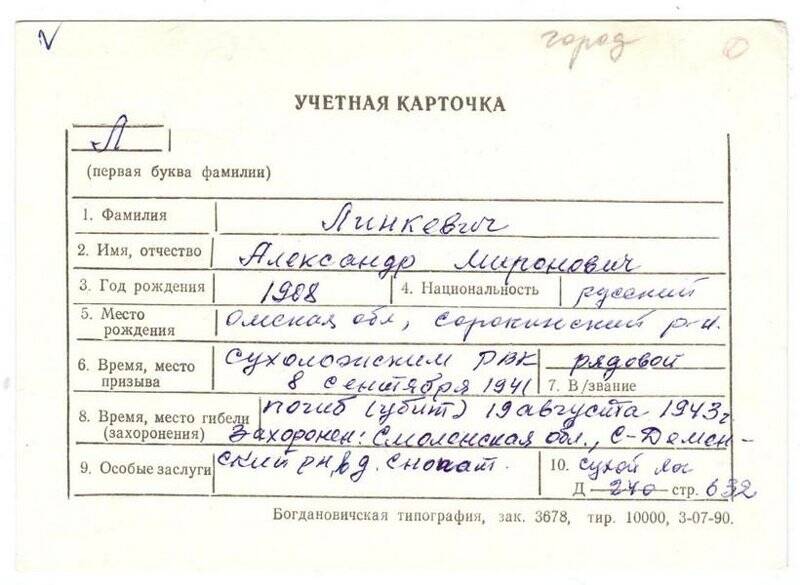 город
УЧЕТНАЯ КАРТОЧКА
Л
(первая буква фамилии)
1. Фамилия Линкевич
2. Имя, отчество Александр Миронович
3. Год рождения 1908 4. Национальность русский
5. Место рождения Омская обл, Сорокинский р-н.
6. Время, место призыва Сухоложским РВК 8 сентября 1941
рядовой
7. В/звание
8. Время, место гибели (захоронения) погиб (убит) 19 августа 1943г
Захоронен: Смоленская обл., С-Демен-
9. Особые заслуги ский рн, д. Снопот.
10. Сухой Лог
Д 240 стр. 632
Богдановичская типография, зак. 3678, тир. 10000, 3-07-90.